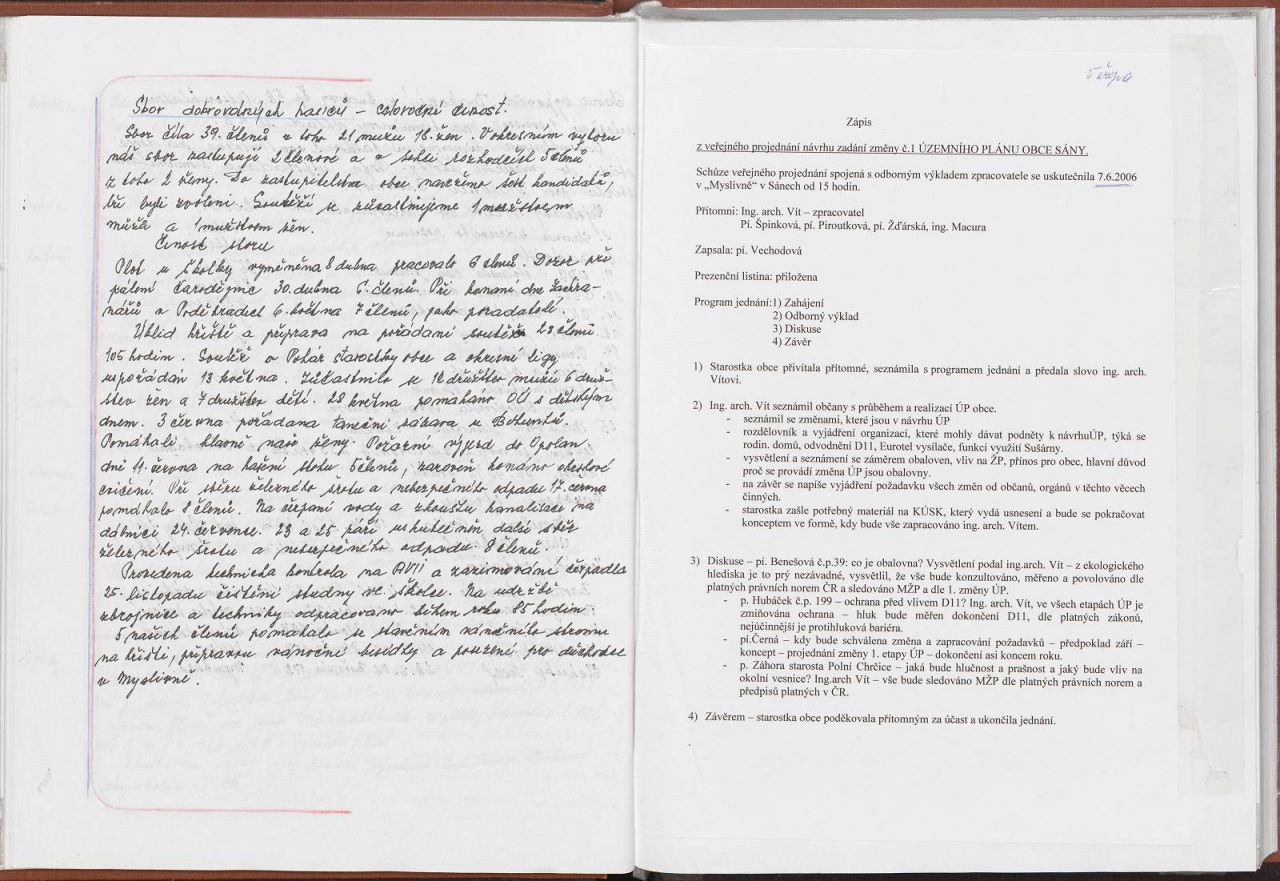 Sbor dobrovolných hasičů – celoroční činnost.
Sbor čítá 39. členů z toho 21 mužů 18. žen. V okresním výboru
náš sbor zastupují 2 členové a v sboru rozhodčích 5 členů
z toho 2 ženy. Do zastupitelstva obce navrženo šest kandidátů,
tři byli zvoleni. Soutěží se zúčastňujeme 1 mužstvem
mužů a 1 mužstvem žen.
Činost sboru
Plot u školky vyměněna 8 dubna pracovalo 6 členů. Dozor při
pálení čarodějnic 30. dubna 6. členů. Při konání dne záchra-
nářů v Poděbradech 6. května 7 členů, jako pořadatelé.
Úklid hřiště a příprava na pořádání soutěže 23 členů
105 hodin. Soutěž o Pohár starostky obce a okresní ligy
uspořádán 13 května. Zúčastnilo se 18 družstev mužů 6 druž-
stev žen a 7 družstev dětí. 28 května pomáháno OÚ s dětským
dnem. 3 června pořádána taneční zábava u Bohunků.
Pomáhali hlavně naše ženy. Požární výjezd do Opolan
dne 14. června na hašení stohu 5 členů, zároveň konáno okrskové
cvičení. Při sběru železného šrotu a nebezpečného odpadu 17. června
pomáhalo 8 členů. Na čerpání vody a zkoušku kanalisace na
dálnici 24. července. 23 a 25 září uskutečněn další sběr
železného šrotu a nebezpečného odpadu 8 členů.
Provedena technická kontrola na AVII a zazimování čerpadla
25. listopadu čištění studny ve školce. Na údržbě
zbrojnice a techniky odpracováno během roku 85 hodin.
5 našich členů pomáhalo se stavěním vánočního stromu
na hřišti, přípravou vánoční besídky a posezení pro důchodce
v Myslivně.
Zápis
z veřejného projednání návrhu zadání změny č.1 ÚZEMNÍHO PLÁNU OBCE SÁNY.
Schůze veřejného projednání spojená s odborným výkladem zpracovatele se uskutečnila 7.6.2006
v „Myslivně“ v Sánech od 15 hodin.
Přítomni: Ing. arch. Vít – zpracovatel
Pí. Špinková, pí. Piroutková, pí. Žďárská, ing. Macura
Zapsala: pí. Vechodová
Prezenční listina: přiložena
Program jednání:1) Zahájení
2) Odborný výklad
3) Diskuse
4) Závěr
1) Starostka obce přivítala přítomné, seznámila s programem jednání a předala slovo ing. arch.
Vítovi.
2) Ing. arch. Vít seznámil občany s průběhem a realizací ÚP obce.
- seznámil se změnami, které jsou v návrhu ÚP
- rozdělovník a vyjádření organizací, které mohly dávat podněty k návrhuÚP, týká se
rodin. domů, odvodnění D11, Eurotel vysílače, funkcí využití Sušárny.
- vysvětlení a seznámení se záměrem obaloven, vliv na ŽP, přínos pro obec, hlavní důvod
proč se provádí změna ÚP jsou obalovny.
- na závěr se napíše vyjádření požadavku všech změn od občanů, orgánů v těchto věcech
činných.
- starostka zašle potřebný materiál na KÚSK, který vydá usnesení a bude se pokračovat
konceptem ve formě, kdy bude vše zapracováno ing. arch. Vítem.
3) Diskuse – pí. Benešová č.p.39: co je obalovna? Vysvětlení podal ing.arch. Vít – z ekologického
hlediska je to prý nezávadné, vysvětlil, že vše bude konzultováno, měřeno a povolováno dle
platných právních norem ČR a sledováno MŽP a dle 1. změny ÚP.
- p. Hubáček č.p. 199 – ochrana před vlivem D11? Ing. arch. Vít, ve všech etapách ÚP je
zmiňována ochrana – hluk bude měřen dokončení D11, dle platných zákonů,
nejúčinnější je protihluková bariéra.
- pí.Černá – kdy bude schválena změna a zapracování požadavků – předpoklad září –
koncept – projednání změny 1. etapy ÚP – dokončení asi koncem roku.
- p. Záhora starosta Polní Chrčice – jaká bude hlučnost a prašnost a jaký bude vliv na
okolní vesnice? Ing.arch Vít – vše bude sledováno MŽP dle platných právních norem a
předpisů platných v ČR.
4) Závěrem – starostka obce poděkovala přítomným za účast a ukončila jednání.